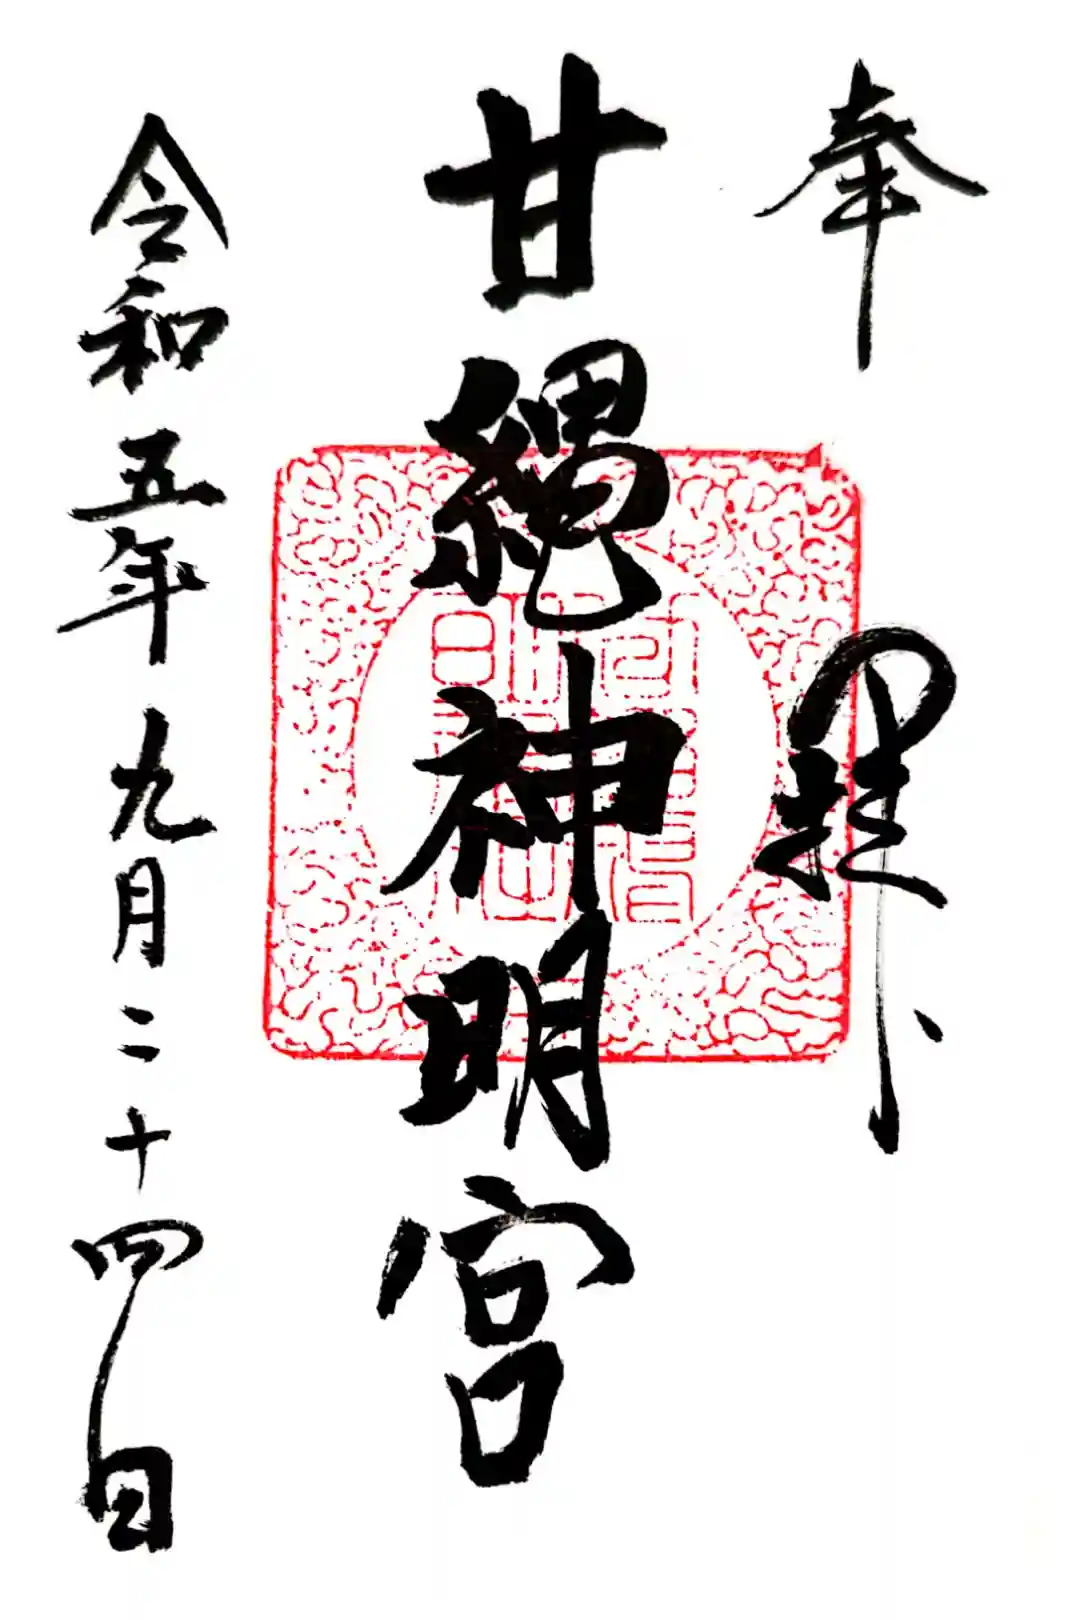 奉拝
甘縄神明宮
令和五年九月二十四日